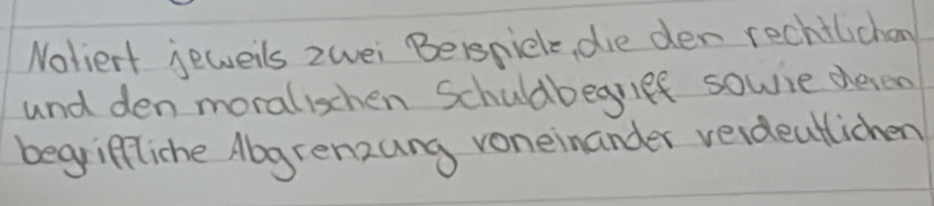 Notiert jeweils zwei Beispiele, die den rechtlichen
und den moralischen Schuldbegriff sowie deren
begriffliche Abgrenzung voneinander verdeutlichen